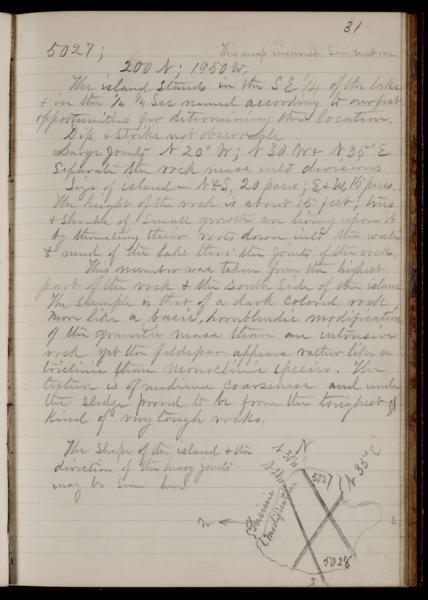 31
5027; This map incorrect See next one
200 N; 1950 W.
The island stands in the S E 1/4 of the lake
& in the 1/4 1/4 Sec named according to our best
opportunities for determining the location.
Dip & Strike not observable
Large Joints N 20° W; N 30 W & N 35° E
Seperate the rock mass into divisions
Size of island — N & S, 20 paces; E & W, 15 paces.
The height of the rock is about 15 feet; trees
& Shrubs of small growth are living upon it
by thrusting their roots down into the water
& mud of the lake thro' the joints of the rock.
This number was taken from the highest
part of the rock & the South side of the island
The sample is that of a dark colored rock
more like a basic, hornblendic modification
of the granitic mass than an intrusive
rock yet the feldspar appears rather like a
triclinic than monoclinic species. The
texture is of medium coarseness and under
the sledge proved to be from the toughest of
kind of very tough rocks.
The Shape of the island & the
direction of the many joints
may be seen here
N
N 30 W
N 20 W
N 35° E
5027
W
modification
5028
S